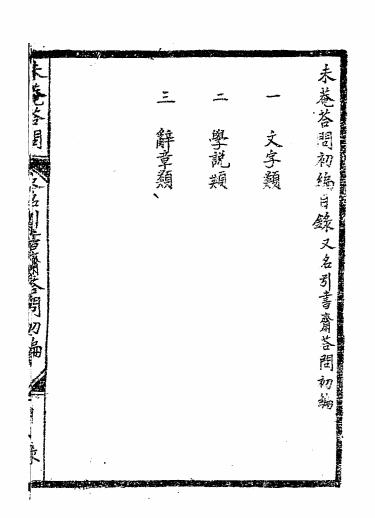 未菴荅問初編目錄又名引書齋荅問初編
一 文字類
二 學說類
三 辭章類
未菴荅問
又名引書齋荅問初編
目錄